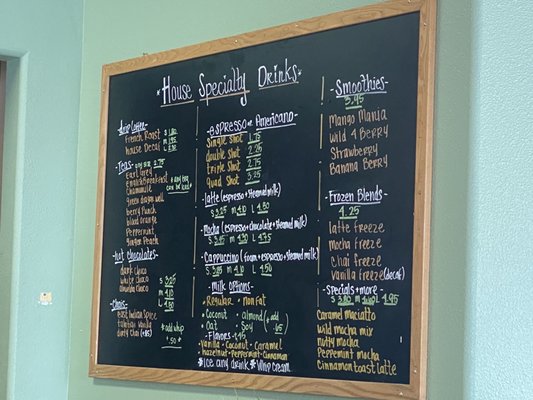 *House Specialty Drinks*
-Drip Coffee-
French Roast
house Decaf
-Teas- any size 2.75
Earl Grey
English Breakfast
Chamomile
green dragon well
berry Punch
blood orange
Peppermint
Ginger Peach
* any tea can be iced *
-Hot Chocolates-
dark Choco
white Choco
S 3.25
M 4.10
L 4.50
-Chais-
east Indian Spice
tahitian Vanilla
dirty Chai (+.85)
* add whip .50 *
-Espresso or Americano
Single Shot 1.75
double Shot 2.25
triple Shot 2.75
quad Shot 3.25
-latte (espresso + steamed milk)
S 3.25 M 4.10 L 4.50
-Mocha (espresso + chocolate + steamed milk)
S 3.95 M 4.30 L 4.75
-Cappuccino (foam + espresso + steamed milk)
S 3.25 M 4.10 L 4.50
-Milk Options-
• Regular • Non Fat
• Coconut • almond (+ add
• Oat • Soy
-Flavors- +.45
• Vanilla • Coconut • Caramel
• hazelnut • Peppermint • Cinnamon
*Ice any drink *Whip Cream
-Smoothies-
3.95
Mango Mania
Wild 4 Berry
Strawberry
Banana Berry
-Frozen Blends-
4.25
latte freeze
mocha freeze
chai freeze
Vanilla freeze (decaf)
-Specials + more-
4.95
Caramel Maciatto
wild mocha mix
nutty mocha
Peppemint mocha
Cinnamon toast latte